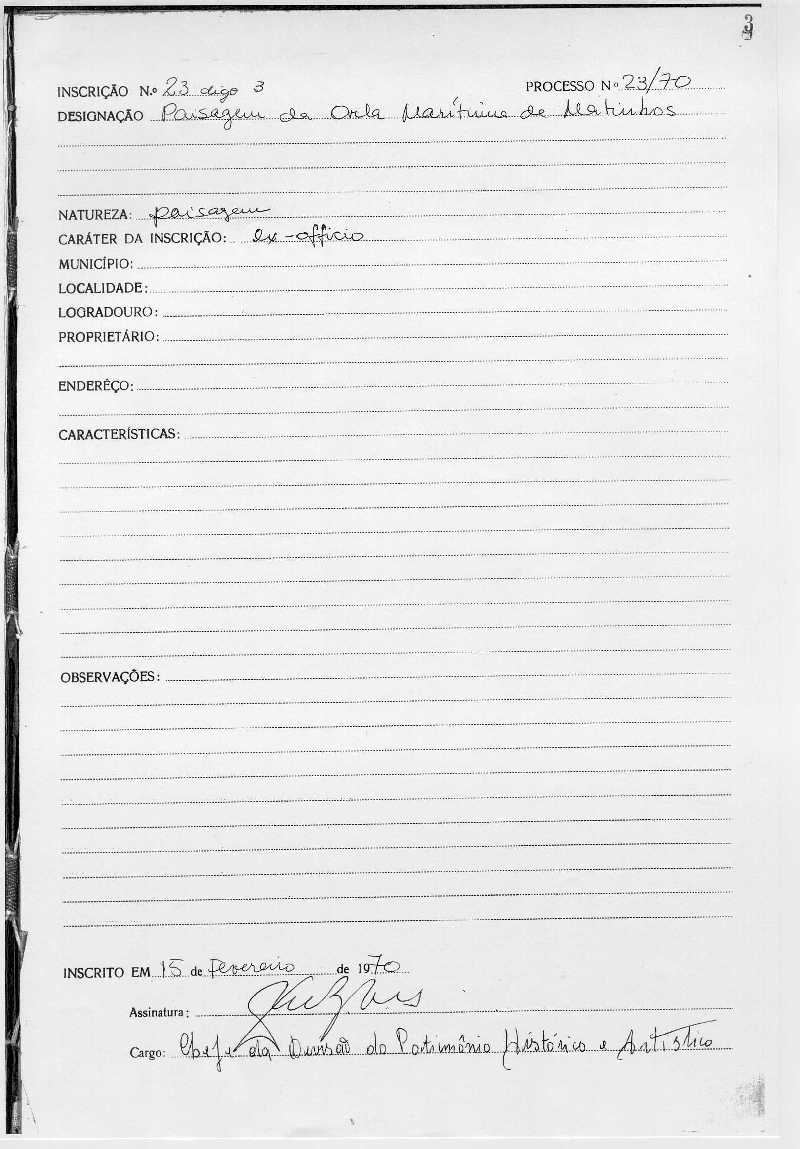 3
INSCRIÇÃO N.º 23 digo 3 PROCESSO Nº 23/70
DESIGNAÇÃO Paisagem da Orla Marítima de Matinhos
NATUREZA: paisagem
CARÁTER DA INSCRIÇÃO: ex-officio
MUNICÍPIO:
LOCALIDADE:
LOGRADOURO:
PROPRIETÁRIO:
ENDERÊÇO:
CARACTERÍSTICAS:
OBSERVAÇÕES:
INSCRITO EM 15 de Fevereiro de 1970
Assinatura:
Cargo: Chefe da Divisão do Patrimônio Histórico e Artístico